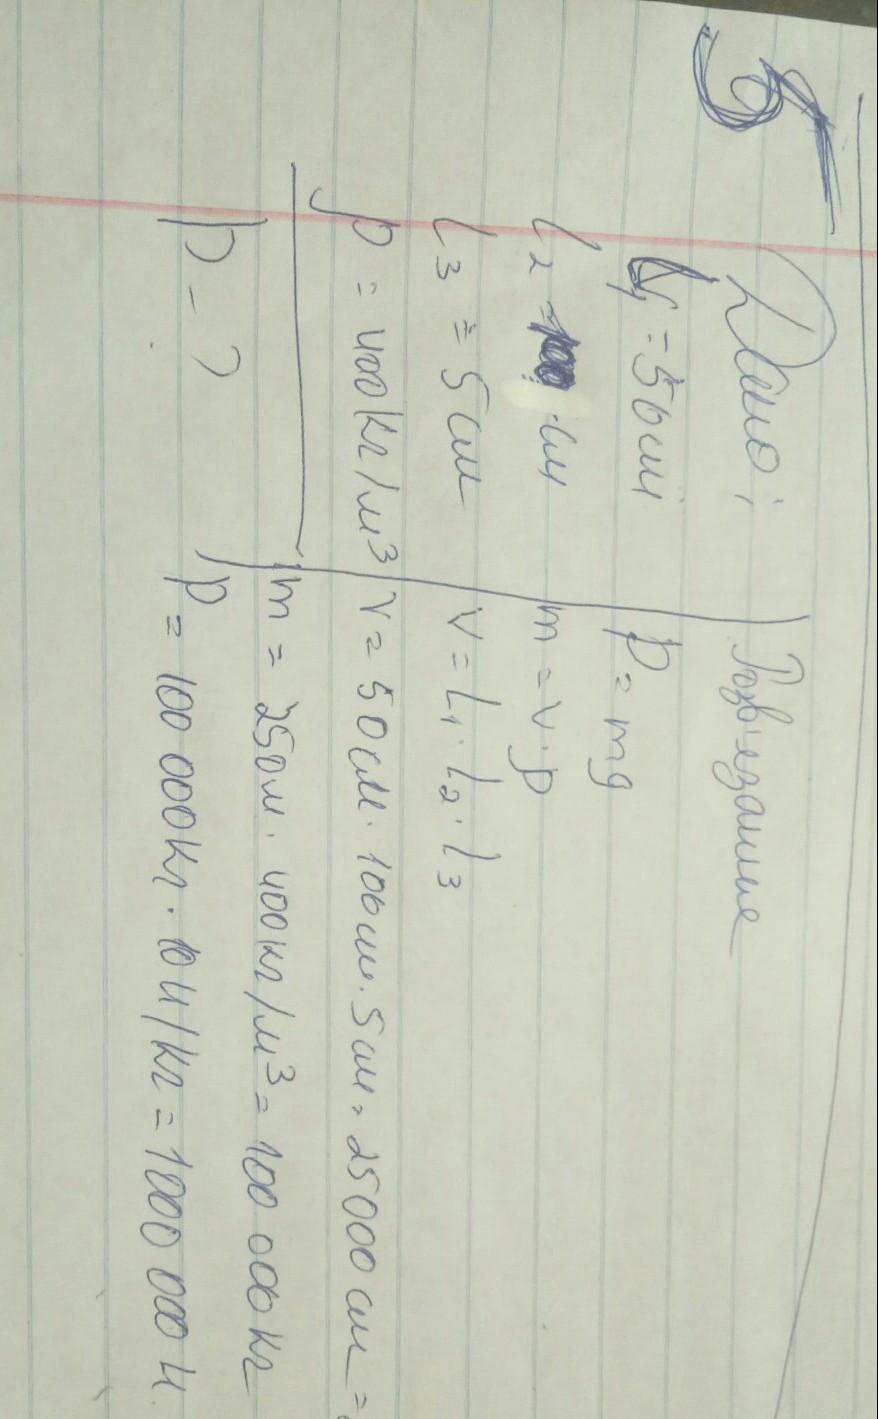 5
Дано:
l₁ = 50 см
l₂ = см
l₃ = 5 см
ρ = 400 кг/м³
P - ?
Розв'язання
P = mg
m = v · ρ
V = l₁ · l₂ · l₃
V = 50 см · 100 см · 5 см = 25000 см =
m = 250 м · 400 кг/м³ = 100 000 кг
P = 100 000 кг · 10 Н/кг = 1000 000 Н.